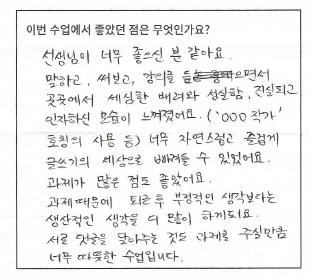 이번 수업에서 좋았던 점은 무엇인가요?
선생님이 너무 좋으신 분 같아요.
말하고, 써보고, 강의를 들으면서
곳곳에서 세심한 배려와 성실함, 진실되고
인자하신 모습이 느껴졌어요. ('OOO 작가'
호칭의 사용 등) 너무 자연스럽고 즐겁게
글쓰기의 세상으로 빠져들 수 있었어요.
과제가 많은 점도 좋았어요.
과제 때문에 퇴근 후 부정적인 생각보다는
생산적인 생각을 더 많이 하게되어요.
서로 댓글을 달아주는 것도 과제로 주실만큼
너무 따뜻한 수업입니다.